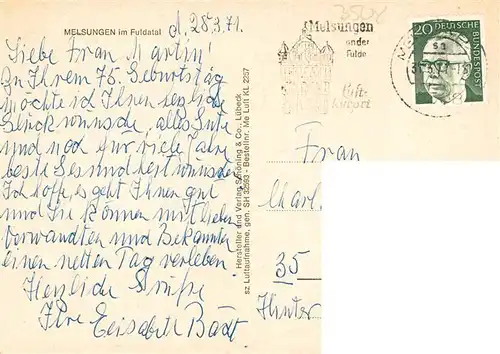 MELSUNGEN im Fuldatal
d. 28.3.71.
Liebe Frau Martin!
Zu Ihrem 75. Geburtstag
möchte ich Ihnen
Glückwünsche, alles Gute
und noch für viele Jahre
beste Gesundheit wünschen
Ich hoffe, es geht Ihnen gut
und Sie können mit lieben
Verwandten und Bekannten
einen netten Tag verleben
Herzliche Grüße
Ihre Elisabeth
Hersteller und Verlag Schöning & Co., Lübeck
sz Luftaufnahme, gen. SH 32593 - Bestellnr. Me Luft KL 2357
Melsungen
an der
Fulda
Luft-
kurort
20 DEUTSCHE
BUNDESPOST
Frau
35
Hinter